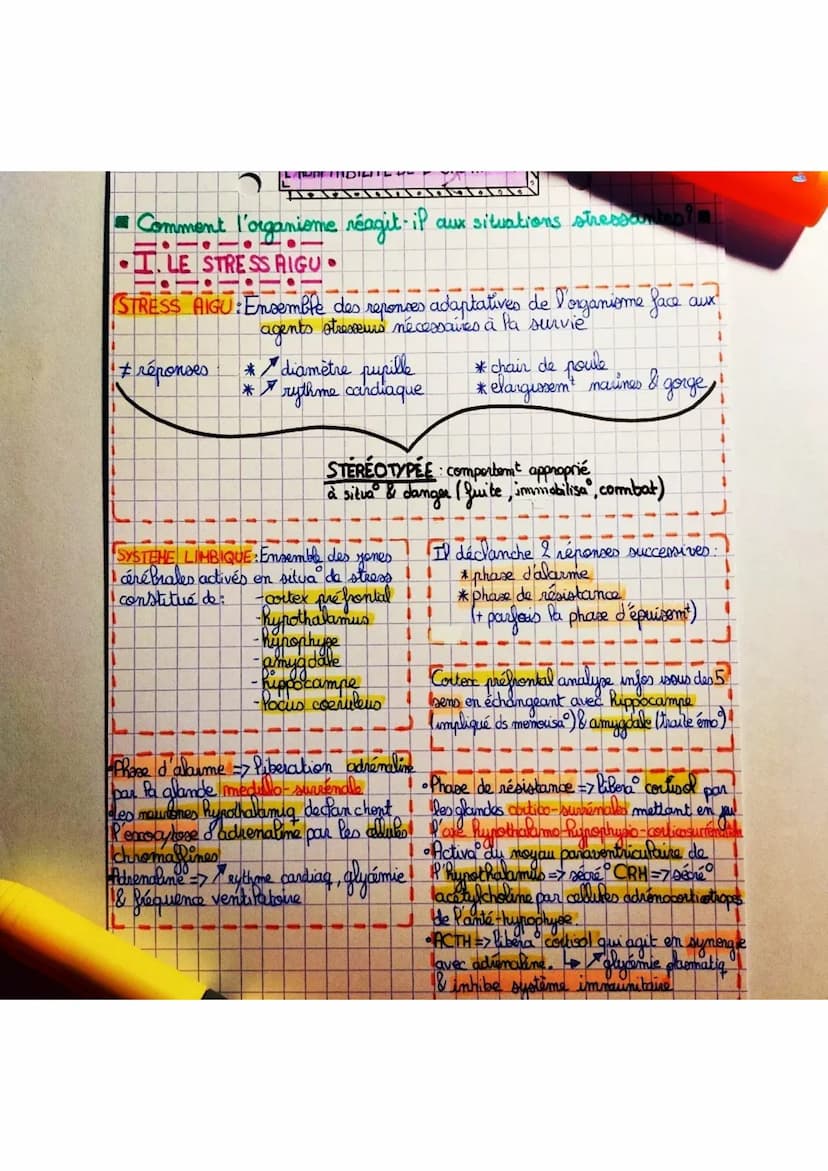 L'ADAPTABILITÉ DE L'
▪ Comment l'organisme réagit-il aux situations stressantes? ▪
• I. LE STRESS AIGU •
STRESS AIGU : Ensemble des reponses adaptatives de l'organisme face aux
agents stresseurs nécessaires à la survie
≠ réponses : * ↗ diamètre pupille * chair de poule
* ↗ rythme cardiaque * elargissemt narines & gorge
STÉRÉOTYPÉE : comportemt approprié
à situa° & danger (fuite, immobilisa°, combat)
SYSTEME LIMBIQUE : Ensemble des zones
cérébrales activés en situa° de stress
constitué de : - cortex préfrontal
- hypothalamus
- hypophyse
- amygdale
- hippocampe
- locus coeruleus
Il déclanche 2 réponses successives :
* phase d'alarme
* phase de résistance
(+ parfois la phase d'épuisemt)
Cortex préfrontal analyse infos issus des 5
sens en échangeant avec hippocampe
(impliqué ds memorisa°) & amygdale (traite émo°)
• Phase d'alarme => liberation adrénaline
par la glande medullo-surrénale
• les neurones hypothalamiq declanchent
l'exocytose d'adrenaline par les cellules
chromaffines
Adrenaline => ↗ rythme cardiaq, glycémie
& fréquence ventilatoire
• Phase de résistance => libera° cortisol par
les glandes cortico-surrénales mettant en jeu
l'axe hypothalamo-hypophyso-corticosurrénale
• Activa° du noyau paraventriculaire de
l'hypothalamus => sécré° CRH => sécré°
acétylcholine par cellules adrénocorticotropes
de l'anté-hypophyse
• ACTH => libéra° cortisol qui agit en synergie
avec adrénaline. ↳ ↗ glycémie plasmatiq
& inhibe système immunitaire